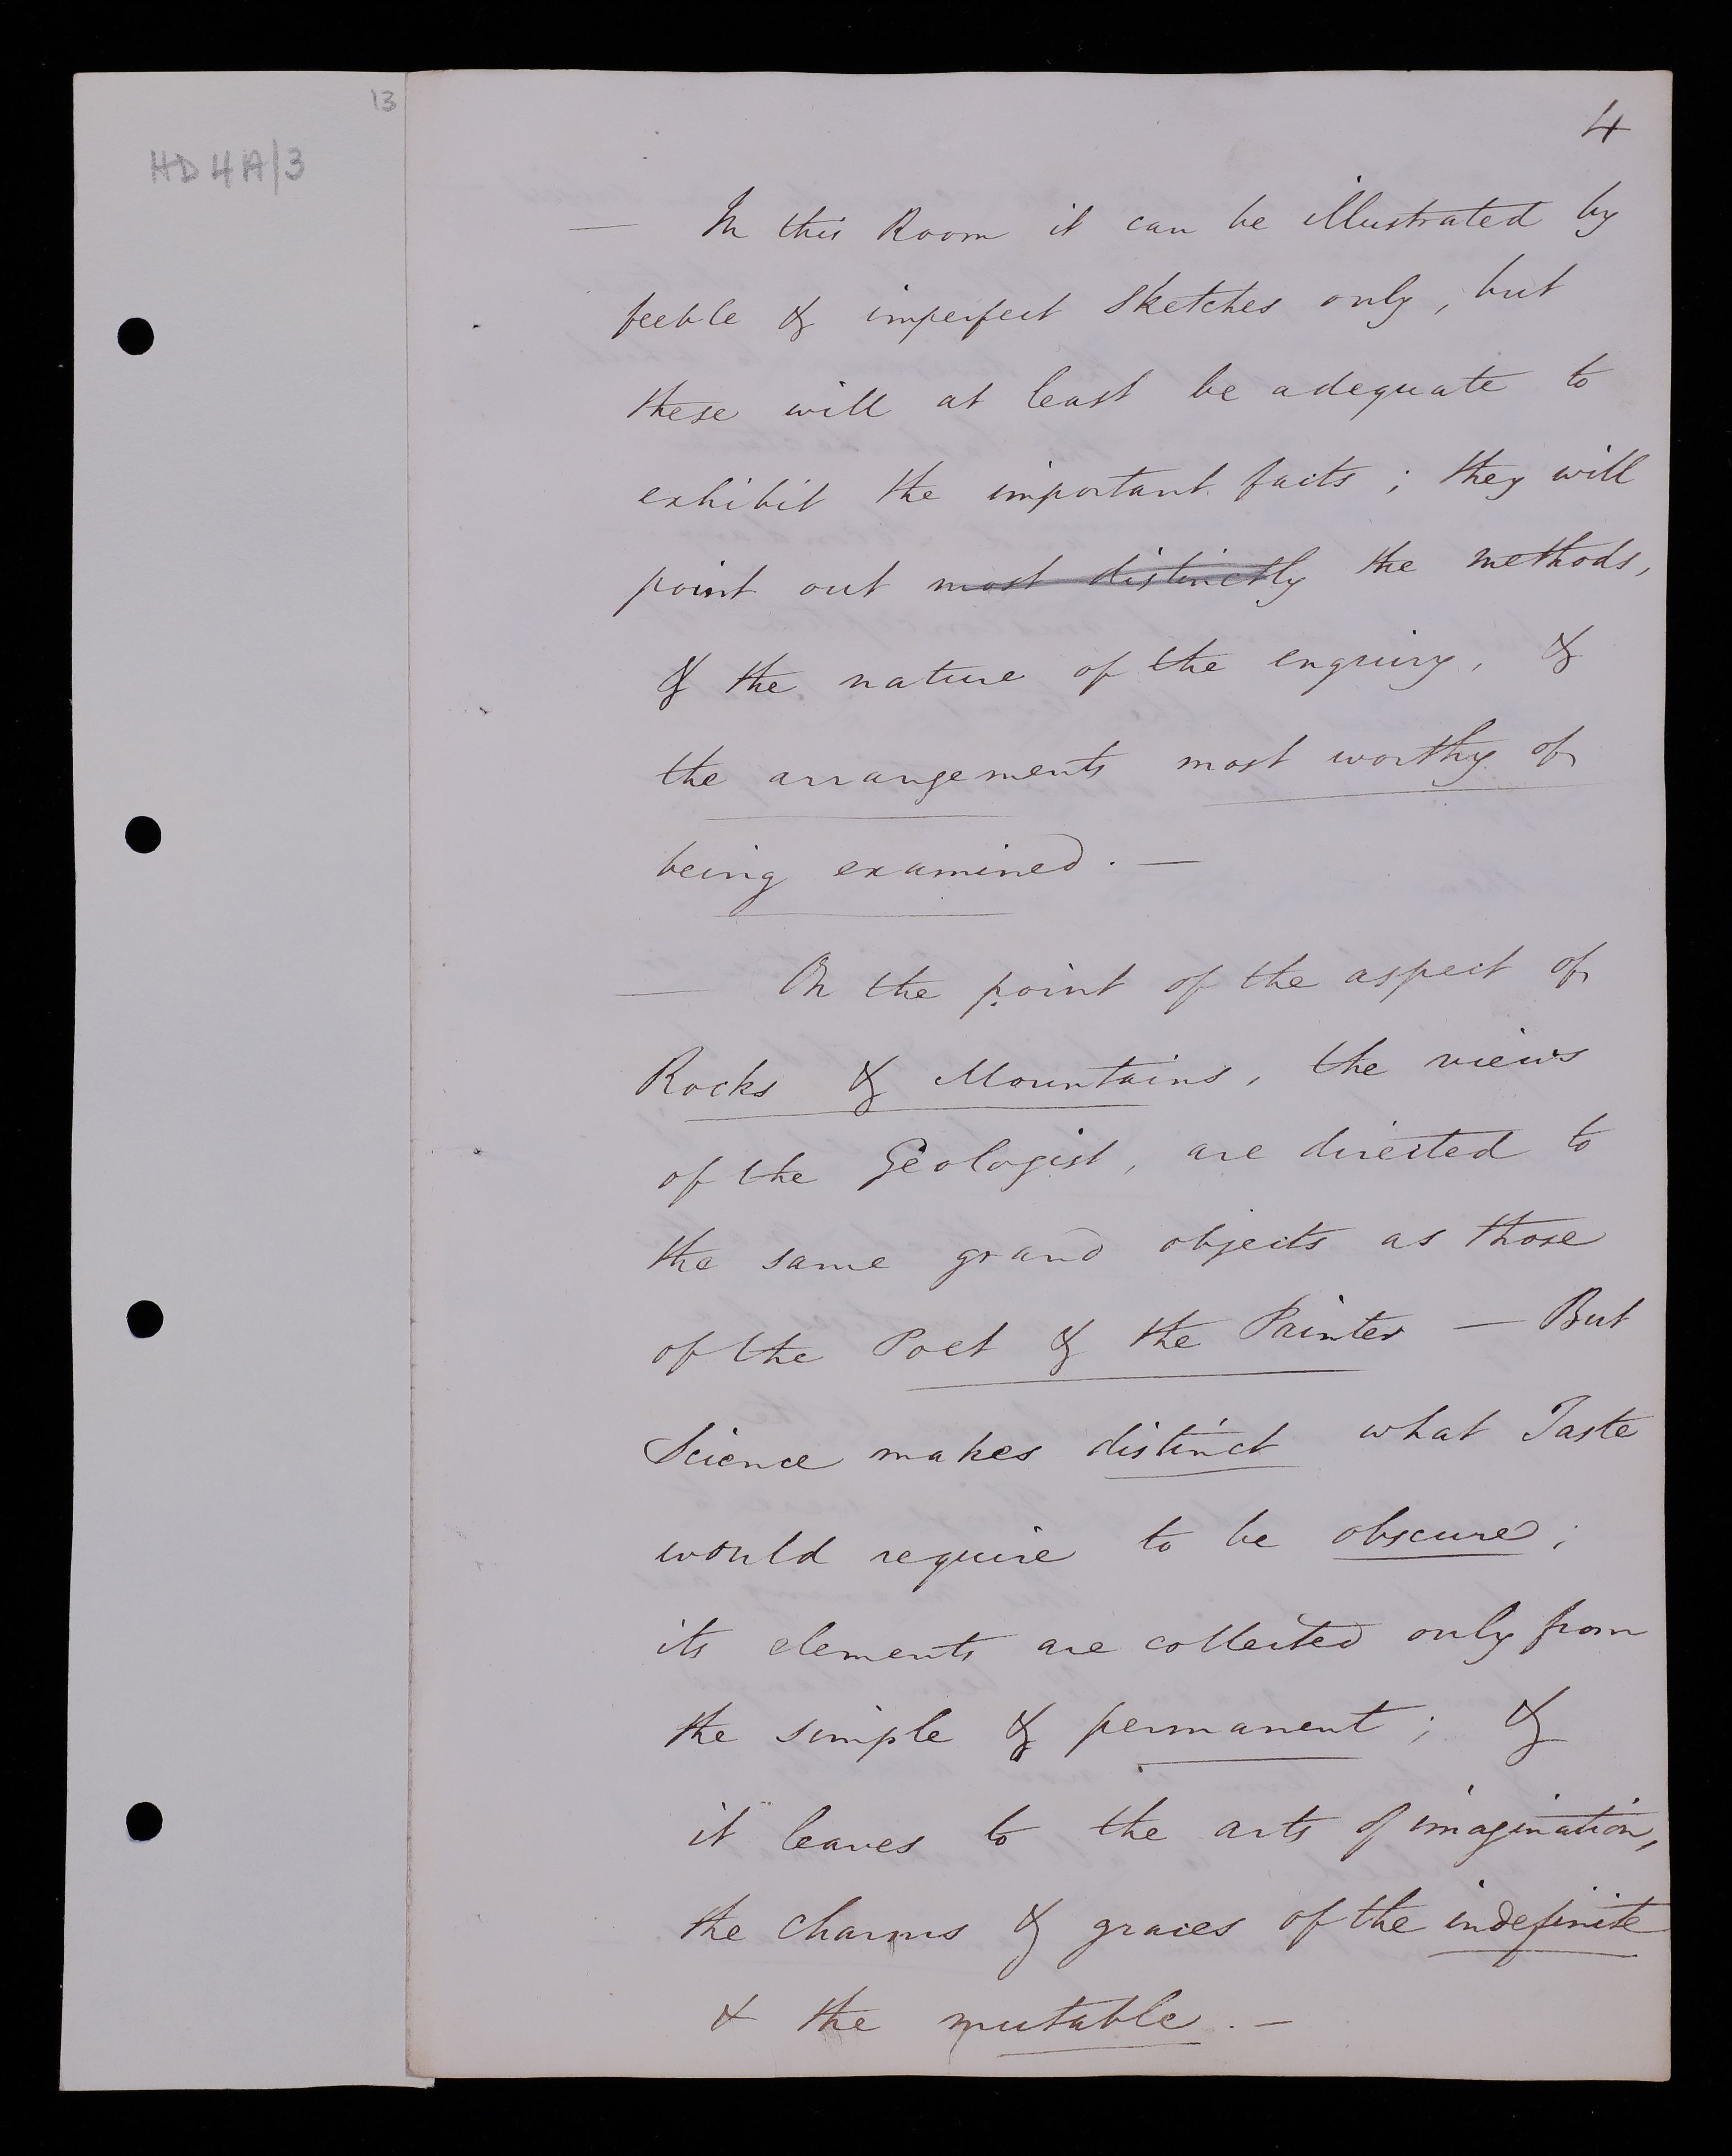 13
HD 4A/3
4
— In this Room it can be illustrated by
feeble & imperfect Sketches only, but
these will at least be adequate to
exhibit the important facts; they will
point out most distinctly the methods,
& the nature of the enquiry, &
the arrangements most worthy of
being examined. —
— On the point of the aspect of
Rocks & Mountains, the views
of the Geologist, are directed to
the same grand objects as those
of the Poet & the Painter — But
Science makes distinct what Taste
would require to be obscure;
its elements are collected only from
the simple & permanent; &
it leaves to the arts of imagination,
the charms & graces of the indefinite
& the mutable. —